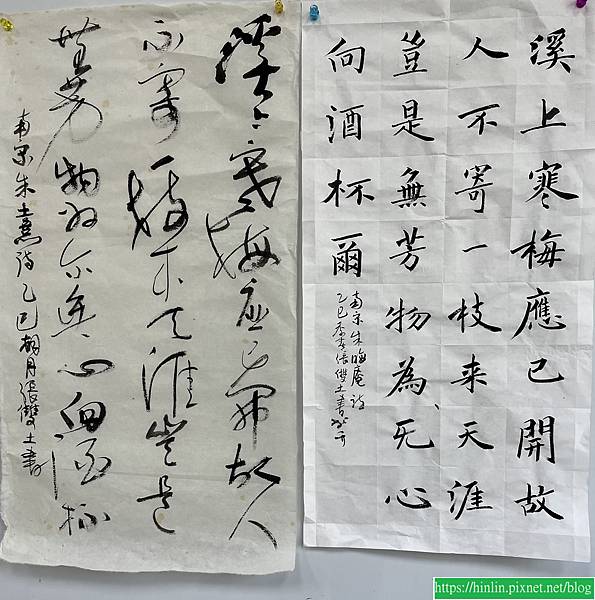 溪上寒梅應已開故
人不寄一枝来天涯
豈是無芳物為无心
向酒杯爾
南宋朱晦庵詩
乙巳張雙土書
溪上寒梅應已開故人
不寄一枝来天涯豈是
無芳物為尔無心向酒杯
南宋朱熹詩乙巳月張雙土書
https://hinlin.pixnet.net/blog